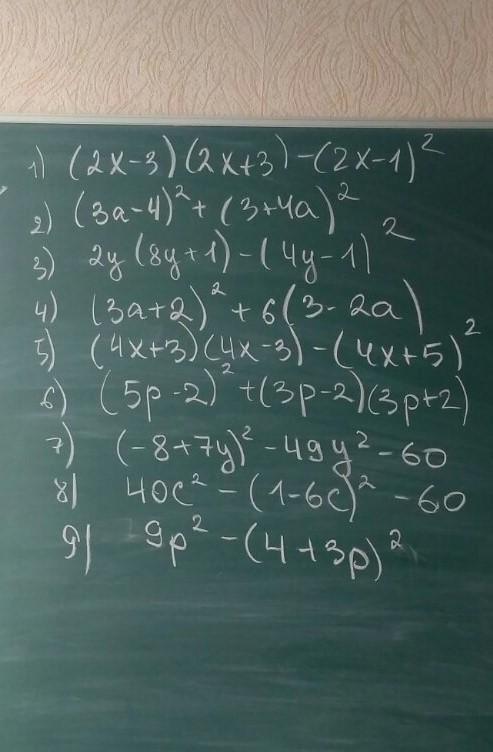 1) (2x-3)(2x+3)-(2x-1)²
2) (3a-4)²+(3+4a)²
3) 2y(8y+1)-(4y-1)²
4) (3a+2)²+6(3-2a)
5) (4x+3)(4x-3)-(4x+5)²
6) (5p-2)²+(3p-2)(3p+2)
7) (-8+7y)²-49y²-60
8) 40c²-(1-6c)²-60
9) 9p²-(4+3p)²